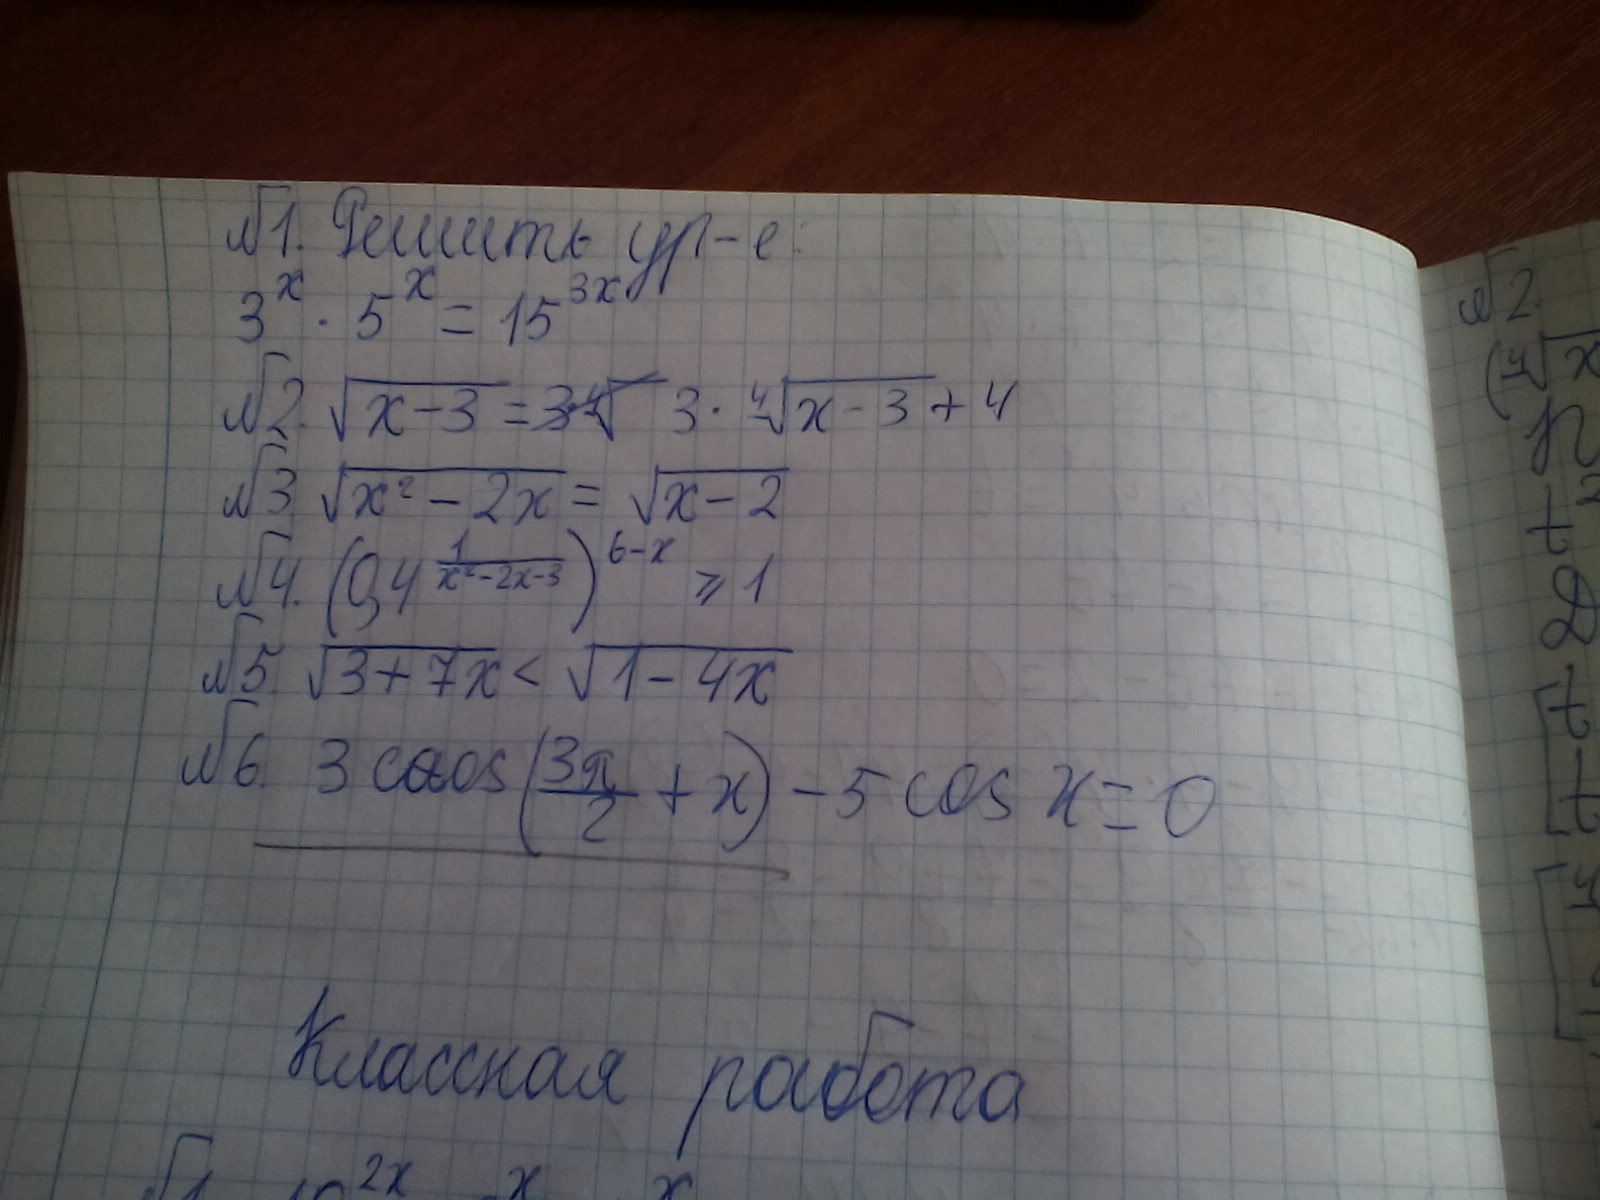 №1. Решить ур-е:
3^x · 5^x = 15^{3x}
№2. √(x-3) = 3 · ⁴√(x-3) + 4
№3 √(x²-2x) = √(x-2)
№4. (0,4^{1/(x²-2x-3)})^{6-x} ≥ 1
№5. √(3+7x) < √(1-4x)
№6. 3 cos(3π/2 + x) - 5 cos x = 0
Классная работа
№2.
(⁴√x
t²
D